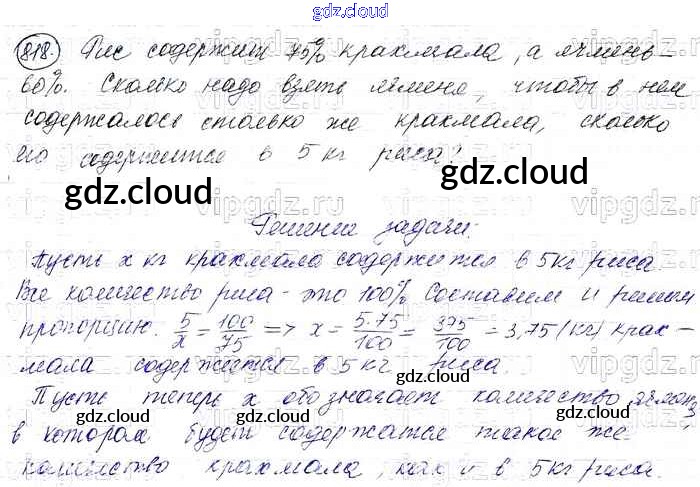 gdz.cloud
818. Рис содержит 75% крахмала, а ячмень –
60%. Сколько надо взять ячменя, чтобы в нем
содержалось столько же крахмала, сколько
его содержится в 5 кг риса?
gdz.cloud gdz.cloud
Решение задачи.
Пусть x кг крахмала содержится в 5 кг риса
Все количество риса - это 100% Составим и решим
пропорцию. 5/x = 100/75 => x = 5·75/100 = 375/100 = 3,75 (кг) крах-
мала содержится в 5 кг риса.
gdz.cloud gdz.cloud
Пусть теперь x обозначает количество ячменя,
gdz.cloud gdz.cloud
в котором будет содержаться такое же
количество крахмала, как и в 5 кг риса.
gdz.cloud gdz.cloud